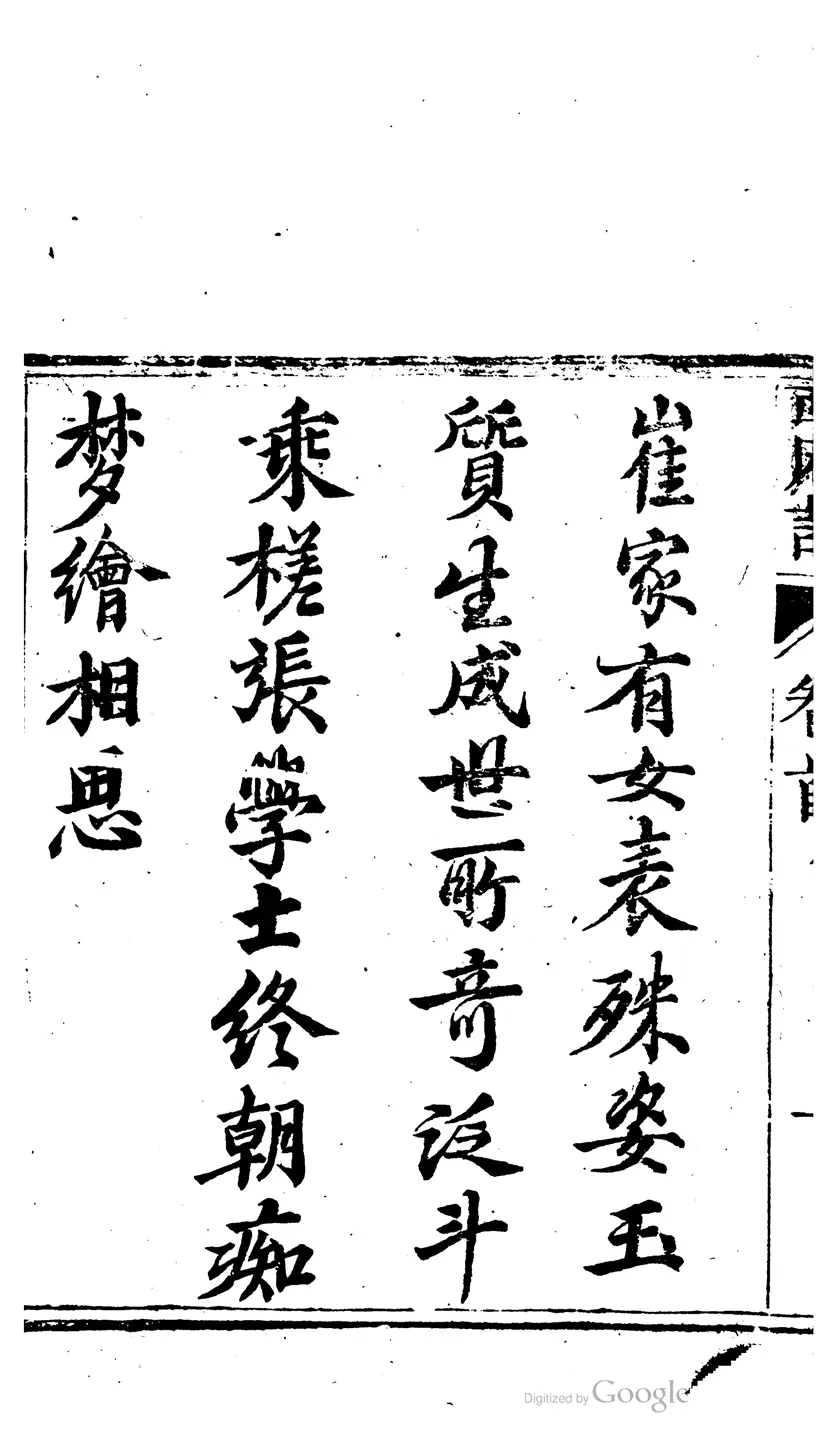 崔家有女表殊姿玉
質生成世所竒泛斗
乘槎張學士終朝痴
梦繪相思
Digitized by Google